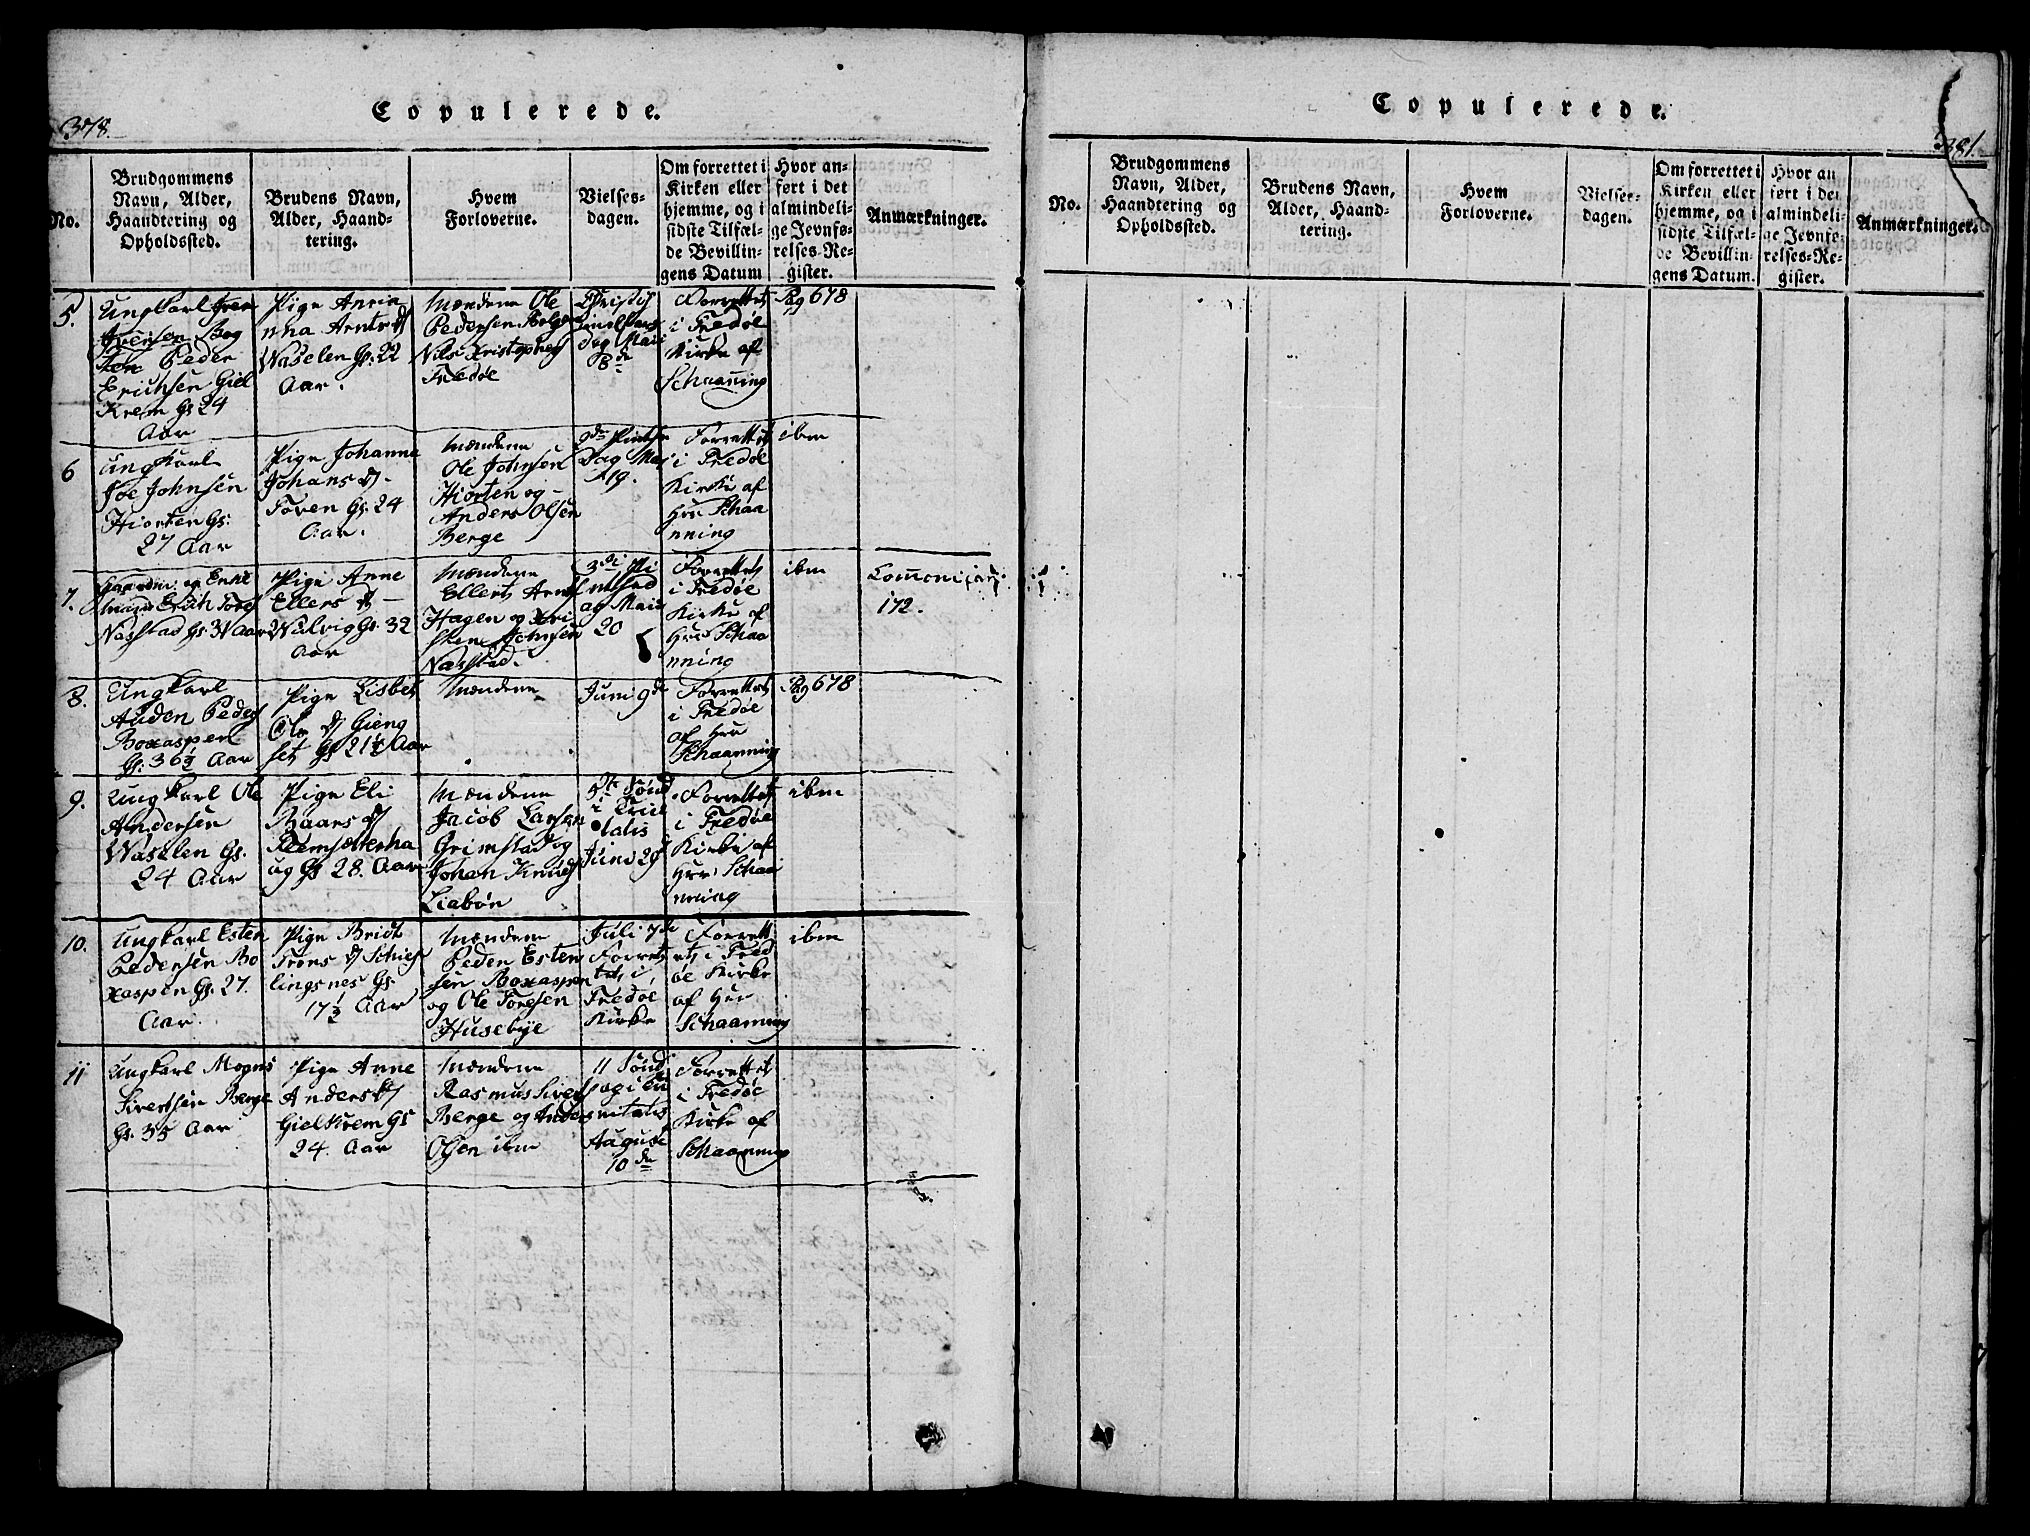 Copulerede.
378.
No.
Brudgommens
Navn, Alder,
Haandtering og
Opholdssted.
Brudens Navn,
Alder, Haand-
tering.
Hvem
Forloverne.
Vielses-
dagen.
Om forrettet i
Kirken eller
hjemme, og i
sidste Tilfæl-
de Bevillin-
gens Datum
Hvor an-
ført i det
almindeli-
ge Jevnfø-
relses-Re-
gister.
Anmærkninger.
5.
Ungkarl Iver
Iversen
Peder
Erichsen Giel
Krem Gs. 24
Aar
Pige Anne
Arnts D
Waselen Gs. 22
Aar.
Mændene Ole
Pedersen
Nils Kristophes
Fredøe
Christi
Himelfars
dag Maii
8de
Forrettet
i Fredøe
Kirke af
Schaanning
Pag 678
6
Ungkarl
Johnsen
Hiorten Gs.
27 Aar
Pige Johanne
Johans D.
Toven Gs. 24
Aar.
Mændene
Ole Johnsen
Hiorten og
Anders Olsen
Berge
2den Pintse
Dag Maj
19.
Forrettet
i Fredøe
Kirke af
Hrr Schaa
nning
ibm
7.
og Enke
mand Erich Tores
Nasstad Gs. Aar
Pige Anne
Ellers D
Wulvig Gs. 32
Aar
Mændene
Ellert Arnts
Hagen og Kri
sten Johnsen
Nasstad.
3di Pi
ntsed
ag Maii
20
Forrettet
i Fredøe
Kirke af
Hrr Schaa
nning
ibm
172.
8.
Ungkarl
Auden Peders
Boxaspen
Gs. 36½ Aar
Pige Lisbet
Ole D Gieng
set Gs 21½ Aar
Mændene
Juni 9de
Forrettet
i Fredøe
af Hrr
Schaanning
Pag 678
9.
Ungkarl Ole
Andersen
Waselen Gs.
24 Aar
Pige Eli
Baars D
Remsætterha
ug Gs 28. Aar
Mændene
Jacob Larsen
Grimstad og
Johan Knuds
Liabøn
5te Sønd
i Trini
tatis
Juni 29
Forrettet
i Fredøe
Kirke af
Hrr Schaa
nning
ibm
10.
Ungkarl Esten
Pedersen Bo
xaspen Gs. 27.
Aar.
Pige Bridt
Trons D Schies
lingsnes Gs.
17½ Aar
Mændene
Peden Esten
sen Boxaspen
og Ole Toresen
Husebye
Juli 7de
Forret
tet i
Fredøe
Kirke
Forrett
et i Fred
øe Kirke
af Hrr
Schaanning
ibm
11
Ungkarl Mogns
Sivertsen Berge
Gs. 35 Aar
Pige Anne
Anders D
Gielkrem Gs
24. Aar
Mændene
Rasmus Sivers
Berge og Anders
Olsen ibm
11 Sønd
ag i tri
nitatis
August
10de
Forrettet
i Fredøe
Kirke af
Schaanning
Copulerede.
381.
No.
Brudgommens
Navn, Alder,
Haandtering og
Opholdssted.
Brudens Navn,
Alder, Haand-
tering.
Hvem
Forloverne.
Vielses-
dagen.
Om forrettet i
Kirken eller
hjemme, og i
sidste Tilfæl-
de Bevillin-
gens Datum.
Hvor an
ført i det
almindeli-
ge Jevnfø-
relses-Re-
gister.
Anmærkninger.